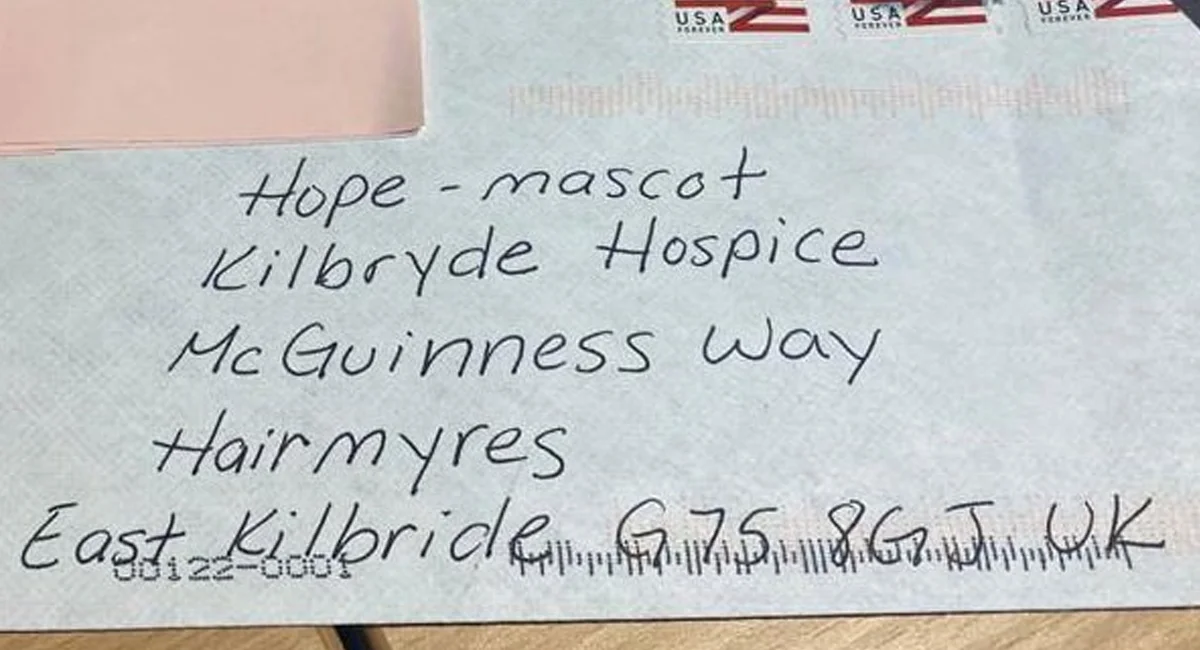 USA FOREVER USA FOREVER USA FOREVER
Hope - mascot
Kilbryde Hospice
McGuinness Way
Hairmyres
East Kilbride G75 8GJ UK
00122-0001